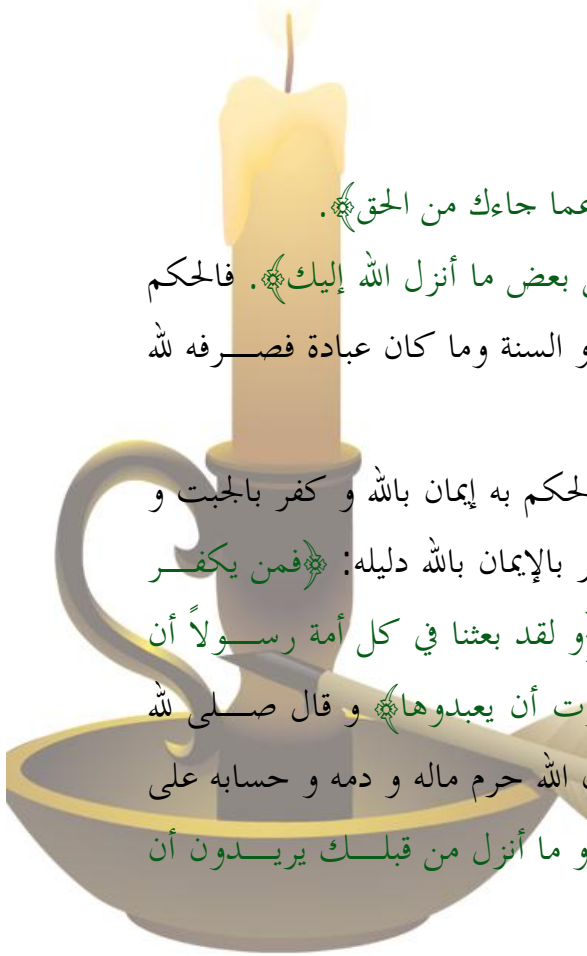 عما جاءك من الحق﴾.
بعض ما أنزل الله إليك﴾. فالحكم
و السنة وما كان عبادة فصـــرفه لله
لحكم به إيمان بالله و كفر بالجبت و
بالإيمان بالله دليله: ﴿فمن يكفـــر
و لقد بعثنا في كل أمة رســـولاً أن
أن يعبدوها﴾ و قال صـــلى لله
الله حرم ماله و دمه و حسابه على
و ما أنزل من قبلـــك يريـــدون أن